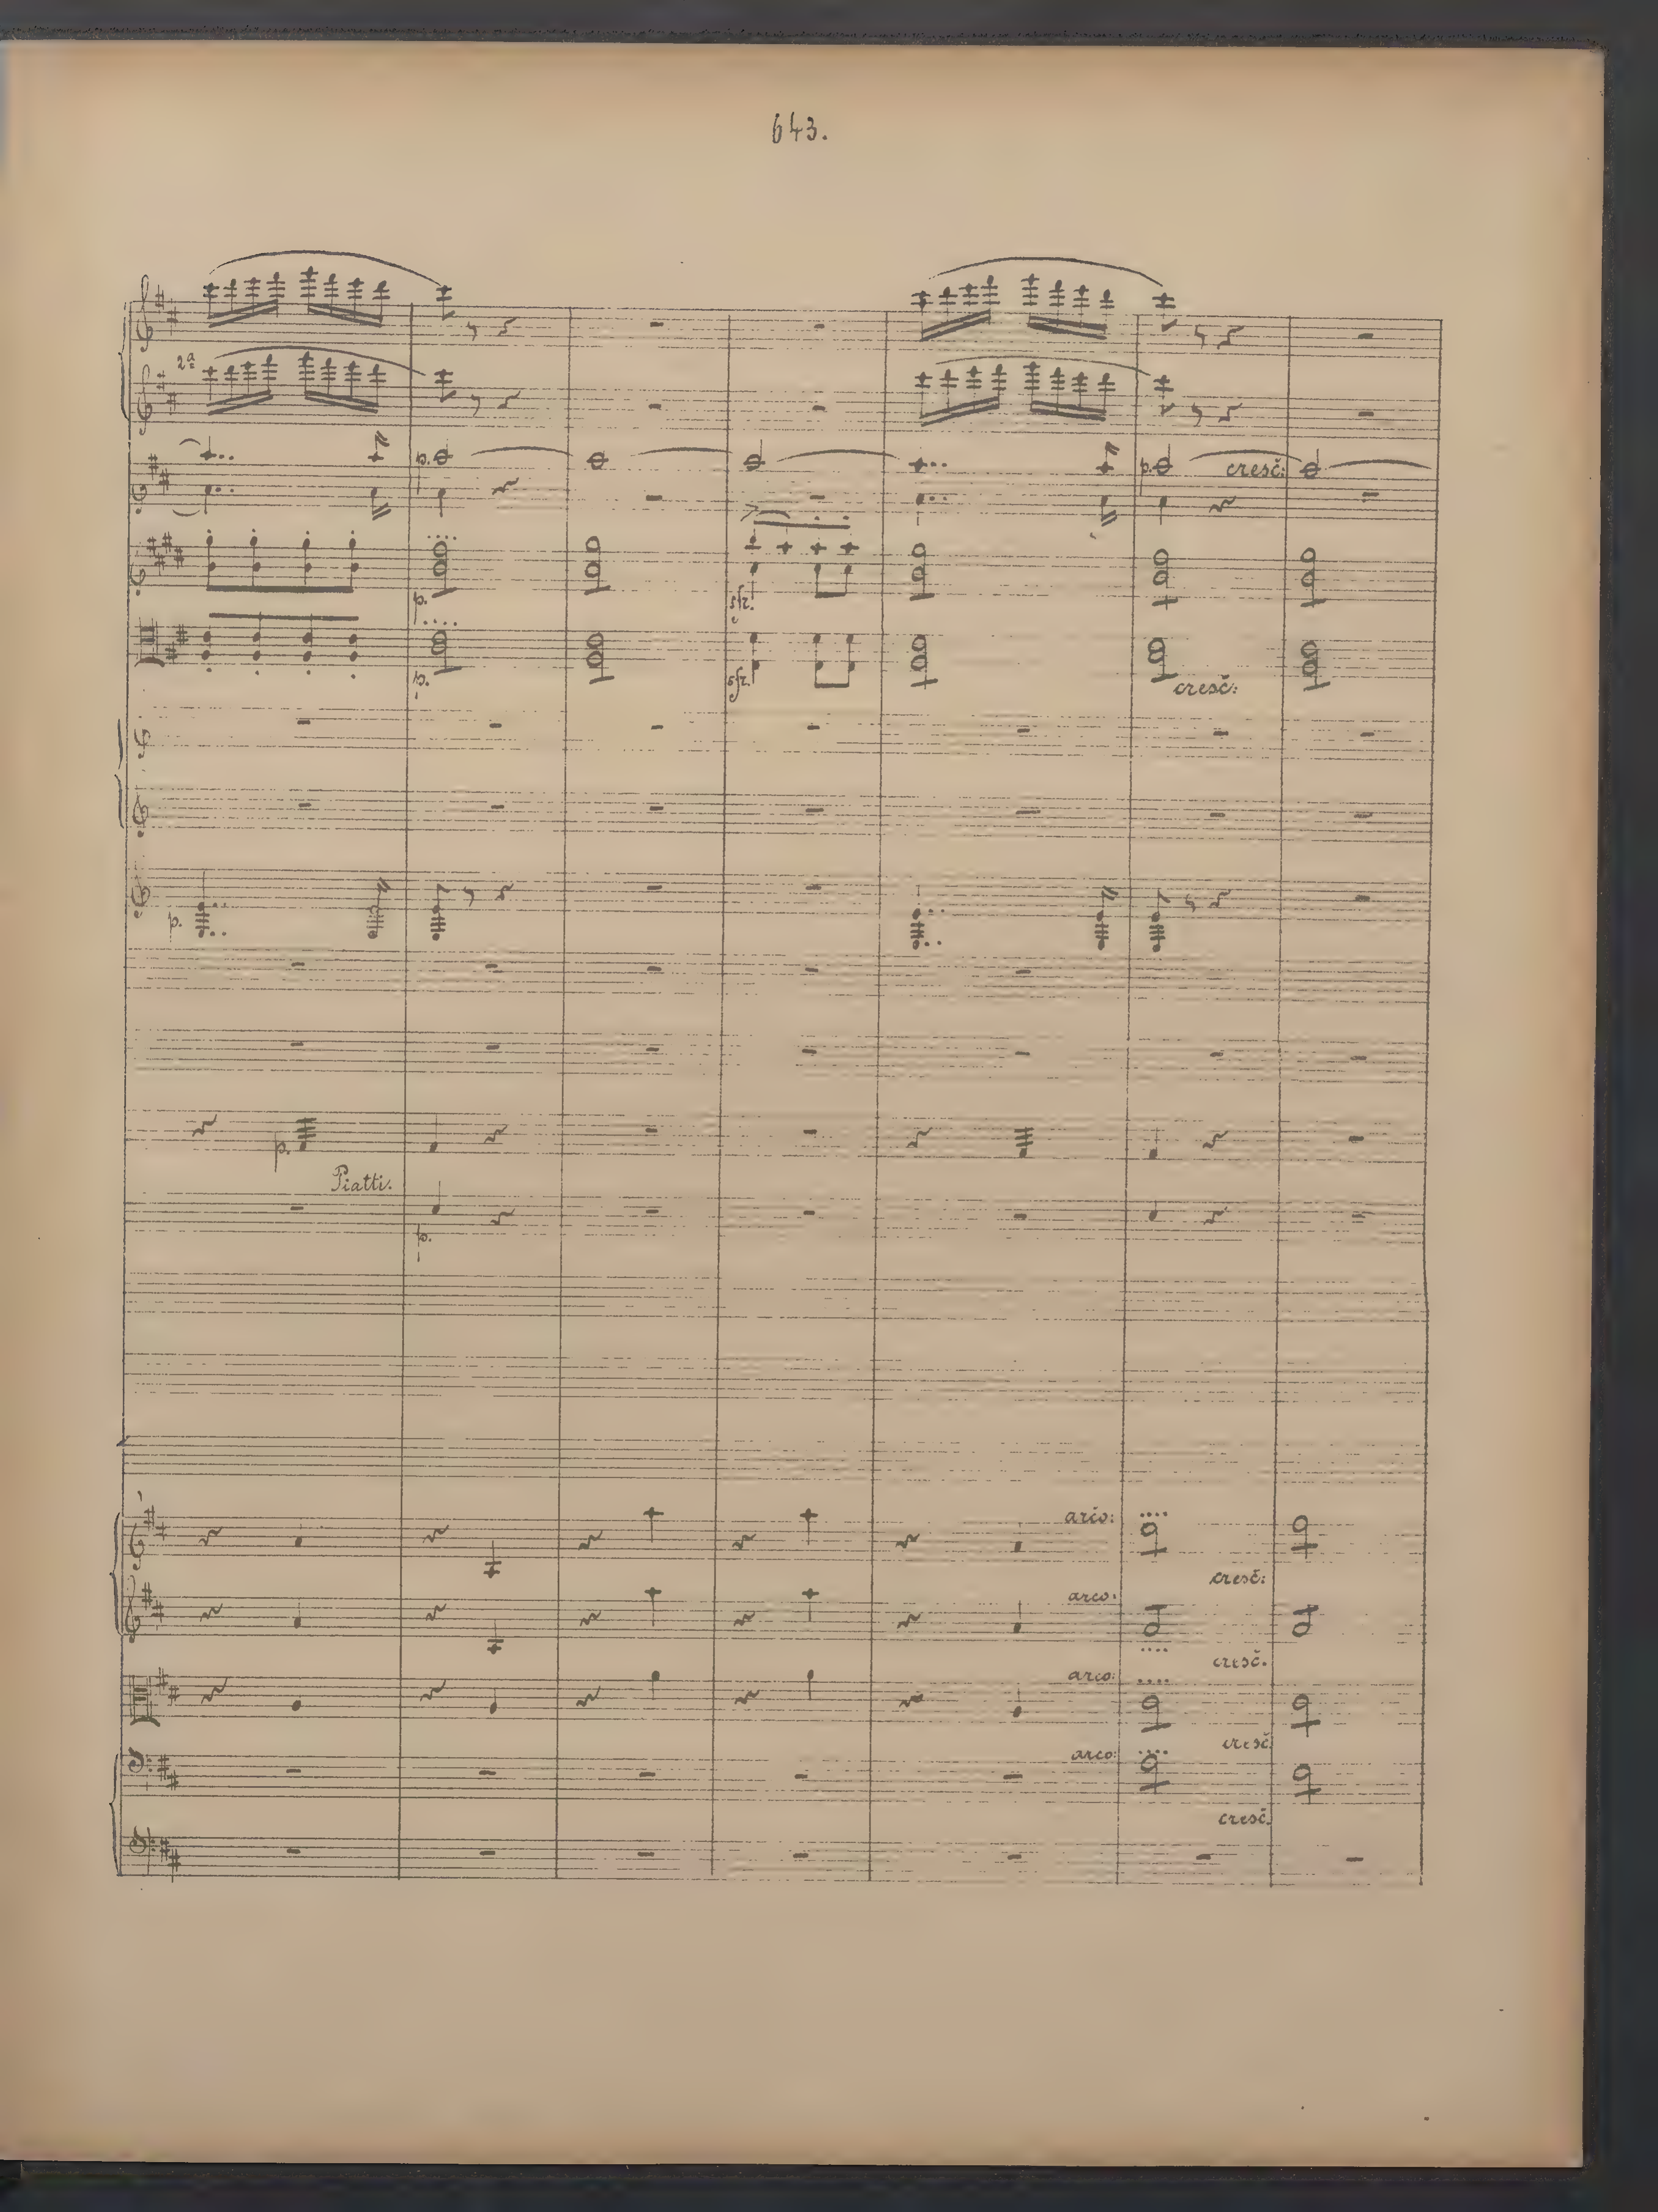 643.
2ª
p. cresc:
p. sfz.
p. sfz. cresc:
p.
p.
Piatti.
p.
arco:
cresc:
arco:
cresc.
arco:
cresc
arco:
cresc.